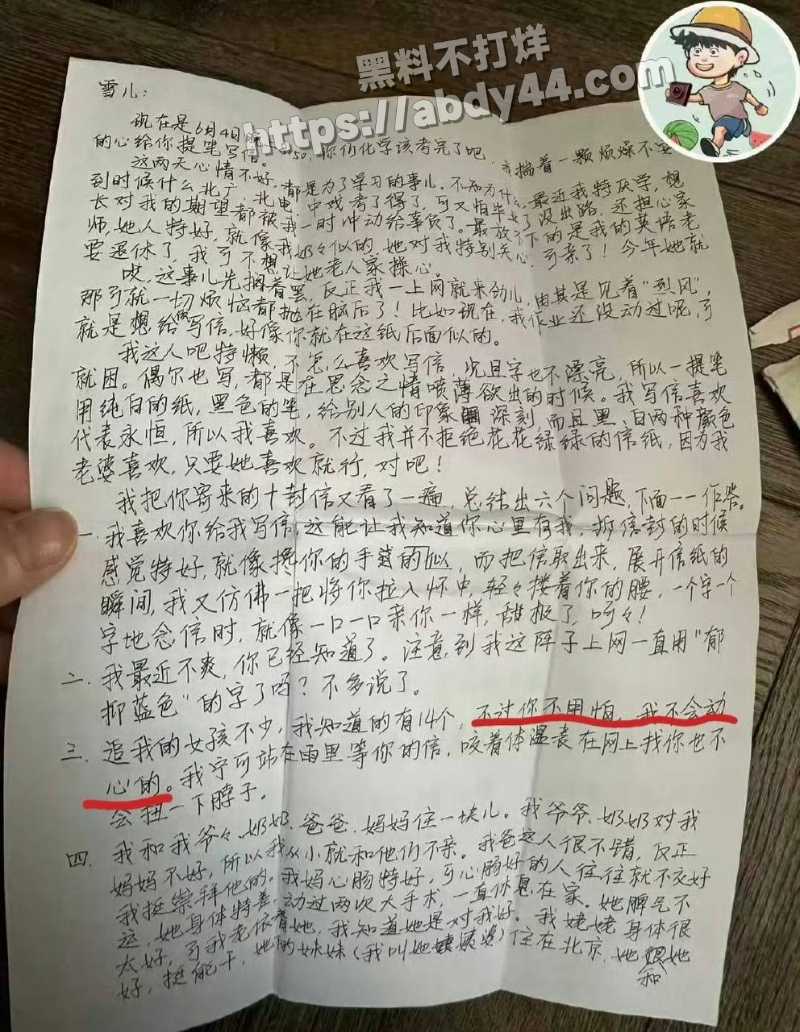 黑料不打烊
https://abdy44.com
雪儿：
现在是6月4日 你们化学该考完了吧 我揣着一颗烦燥不安
的心给你提笔写信
这两天心情不好，都是为了学习的事儿，不知为什么，最近我特厌学，想
到时候什么北广、北电、中戏考了得了，可又怕毕业了没出路，还担心家
长对我的期望都被我一时冲动给辜负了。最放不下的是我的英语老
师，她人特好，就像我奶奶似的，她对我特别关心，可亲了！今年她就
要退休了，我可不想让她老人家操心。
哎，这事儿先搁着罢，反正我一上网就来劲儿，由其是见着“烈风”，
那可就一切烦恼都抛在脑后了！比如现在，我作业还没动过呢，可
就是想给你写信，好像你就在这纸后面似的。
我这人吧特懒，不怎么喜欢写信，况且字也不漂亮，所以一提笔
就困。偶尔也写，都是在思念之情喷薄欲出的时候。我写信喜欢
用纯白的纸，黑色的笔，给别人的印象深刻，而且黑、白两种颜色
代表永恒，所以我喜欢。不过我并不拒绝花花绿绿的信纸，因为我
老婆喜欢，只要她喜欢就行，对吧！
我把你寄来的十封信又看了一遍，总结出六个问题，下面一一作答。
一.我喜欢你给我写信，这能让我知道你心里有我，拆信封的时候
感觉特好，就像搀你的手似的，而把信取出来，展开信纸的
瞬间，我又仿佛一把将你拉入怀中，轻轻搂着你的腰，一个字一个
字地念信时，就像一口一口亲你一样，甜极了，呵々！
二.我最近不爽，你已经知道了。注意到我这阵子上网一直用“郁
抑蓝色”的字了吗？不多说了。
三.追我的女孩不少，我知道的有14个，不过你不用怕，我不会动
心的。我宁可站在雨里等你的信，咬着体温表在网上找你也不
会扭一下脖子。
四.我和我爷々、奶奶、爸爸、妈妈住一块儿。我爷爷、奶奶对我
妈妈不好，所以我从小就和他们不亲。我爸这人很不错，反正
我挺崇拜他的。我妈心肠特好，可心肠好的人往往就不交好
运，她身体特差，动过两次大手术，一直休息在家。她脾气不
太好，可我老依着她，我知道她是对我好。我姥姥身体很
好，挺能干，她的妹妹（我叫她姨姨婆）住在北京，她和